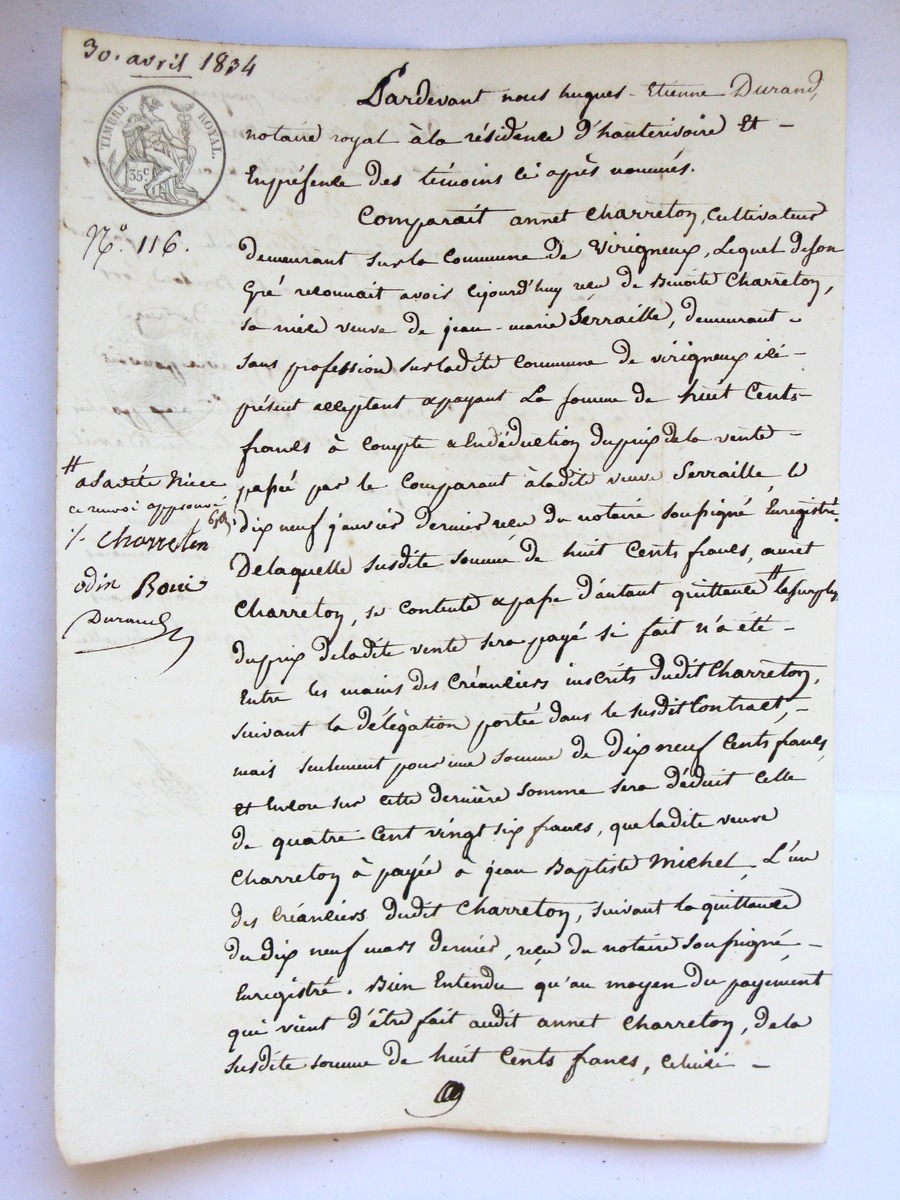 30. avril 1834
TIMBRE ROYAL.
35c
N.o 116.
Pardevant nous hugues-Etienne Durand,
notaire royal à la résidence d'hauterivoire Et -
En présence des témoins ci après nommés.
Comparait annet Charreton, Cultivateur
demeurant sur la Commune de Virigneux, Lequel de son
Gré reconnait avoir cejourd'huy reçu de Benoite Charreton,
sa niece veuve de jean-marie Serraille, demeurant -
sans profession sur ladite Commune de virigneux ici -
présent acceptant & payant La somme de huit Cents -
francs à compte & En déduction du prix de la vente -
passée par le Comparant à ladite veuve Serraille, le
dix neuf janvier dernier reçu du notaire soussigné Enregistré.
De laquelle susdite somme de huit Cents francs, annet
Charreton, se contente & passe d'autant quittance # le surplus
du prix de ladite vente sera payé si fait n'a été -
Entre les mains des Créanciers inscrits dudit Charreton,
suivant la délégation portée dans le susdit Contract, -
mais seulement pour une somme de dix neuf Cents francs,
et Encore sur cette dernière somme sera déduit celle
de quatre Cent vingt six francs, que ladite veuve
Charreton à payée à jean Baptiste Michel, L'un
des Créanciers dudit Charreton, suivant la quittance
du dix neuf mars dernier, reçue du notaire soussigné -
Enregistré. Bien Entendu qu'au moyen du payement
qui vient d'être fait audit annet Charreton, de la
susdite somme de huit Cents francs, celuici -
# a sadite Niece
ce renvoi approuvé
Charreton
odin Bouis
Durand